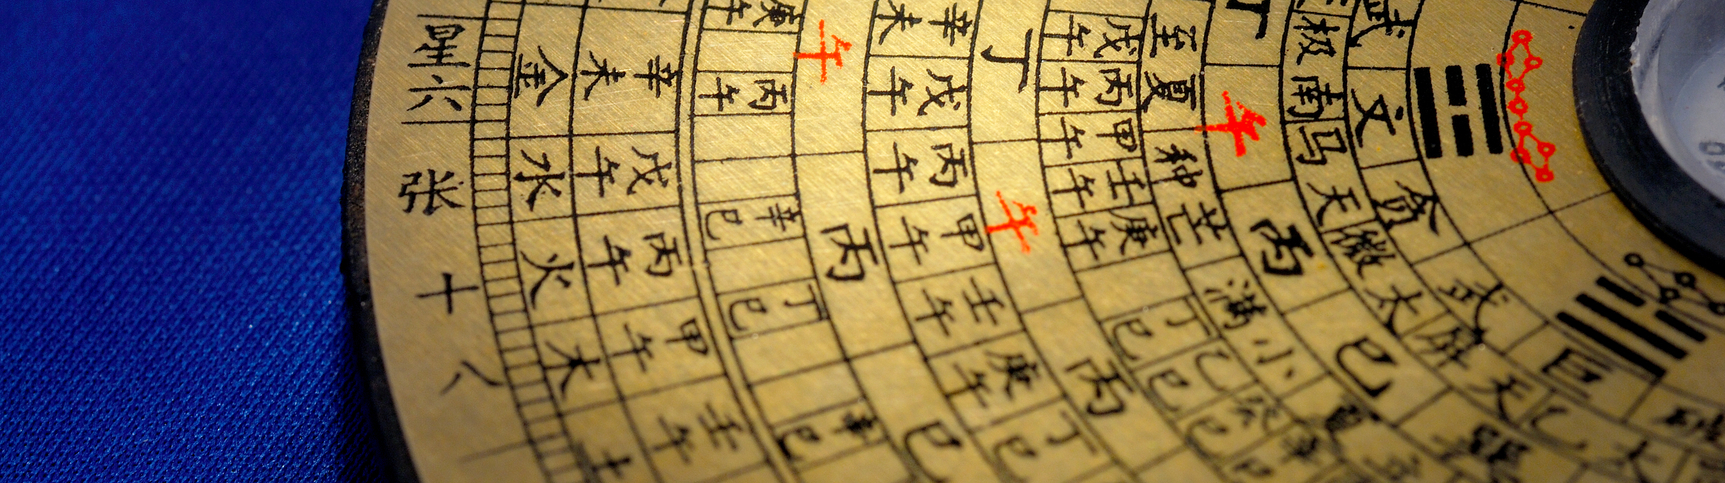 星六
张
十
八
金
水
火
木
土
辛未
戊午
丙午
甲午
壬午
庚午
丙午
辛巳
丁巳
午
丙
巳
辛未
戊午
丙午
甲午
壬午
庚午
丁巳
丁
午
丙
戊午
丙午
甲午
壬午
庚午
丁巳
乙巳
至夏
种芒
满小
丁
午
丙
巳
极南
马天
微太
屏天
武
文
贪
武
巨